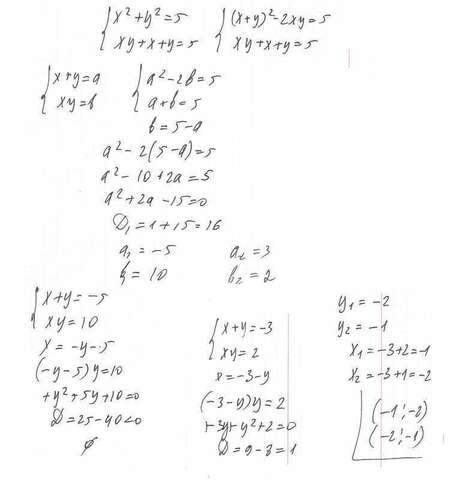 {x²+y²=5
xy+x+y=5
{(x+y)²-2xy=5
xy+x+y=5
{x+y=a
xy=b
{a²-2b=5
a+b=5
b=5-a
a²-2(5-a)=5
a²-10+2a=5
a²+2a-15=0
D₁=1+15=16
a₁=-5
b=10
a₂=3
b₂=2
{x+y=-5
xy=10
x=-y-5
(-y-5)y=10
+y²+5y+10=0
D=25-40<0
∅
{x+y=-3
xy=2
x=-3-y
(-3-y)y=2
+3y+y²+2=0
D=9-8=1
y₁=-2
y₂=-1
x₁=-3+2=-1
x₂=-3+1=-2
(-1;-2)
(-2;-1)